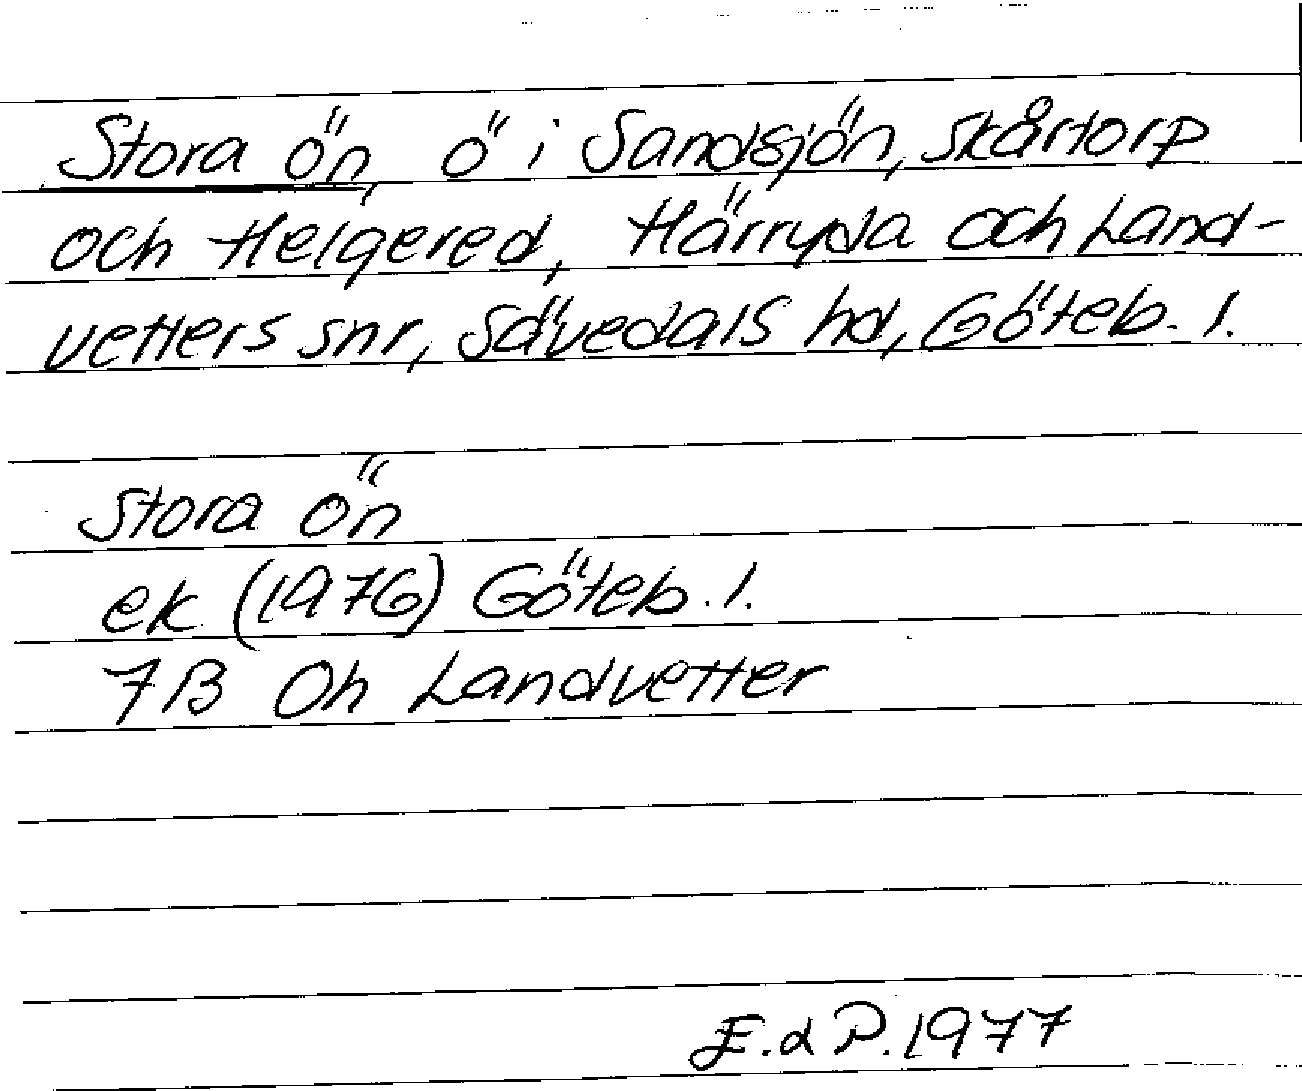 Stora ön, ö i Sandsjön, Skårtorp
och Helgered, Härryda och Land-
vetters snr, Sävedals hd, Göteb. l.
Stora ön
ek (1976) Göteb. l.
7B Oh Landvetter
E. af P. 1977